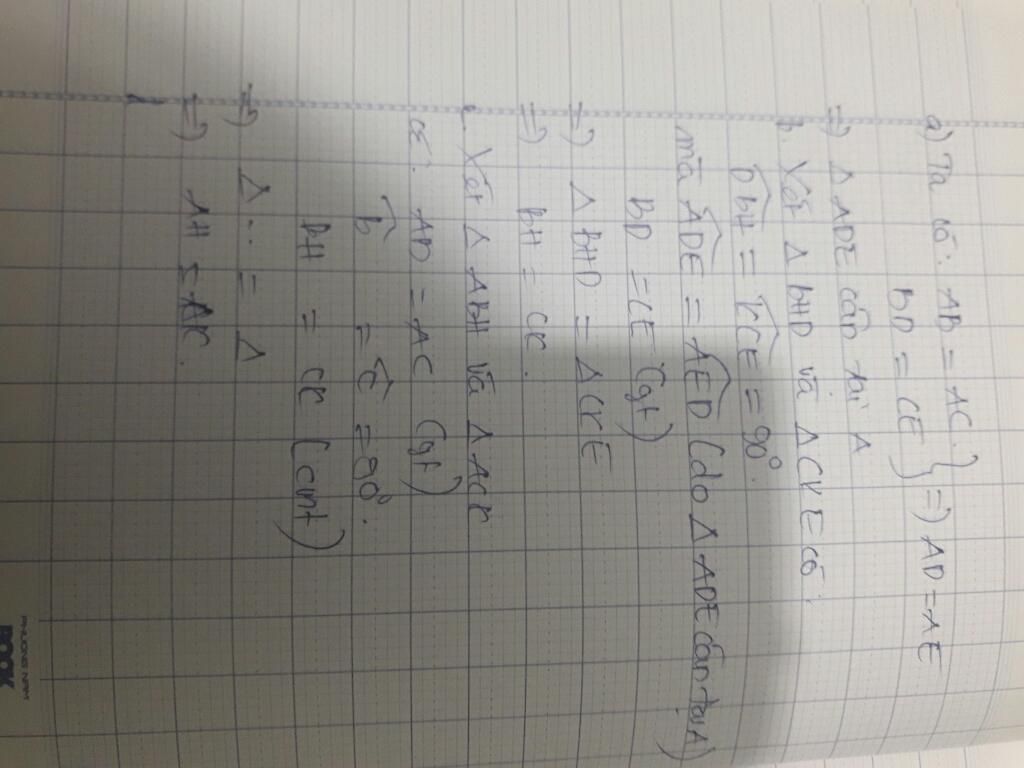 a) Ta có: AB = AC.
BD = CE } =) AD = AE
=) Δ ADE cân tại A
b. Xét Δ BHD và Δ CKE có:
DBH = KCE = 90°.
mà ADE = AED (do Δ ADE cân tại A)
BD = CE (gt)
=) Δ BHD = Δ CKE
=) BH = CK.
c. Xét Δ ABH và Δ ACK
có: AB = AC (gt)
B = C = 90°.
BH = CK (cmt)
=) Δ... = Δ
=) AH = AK.
PHƯƠNG NAM
BOOK